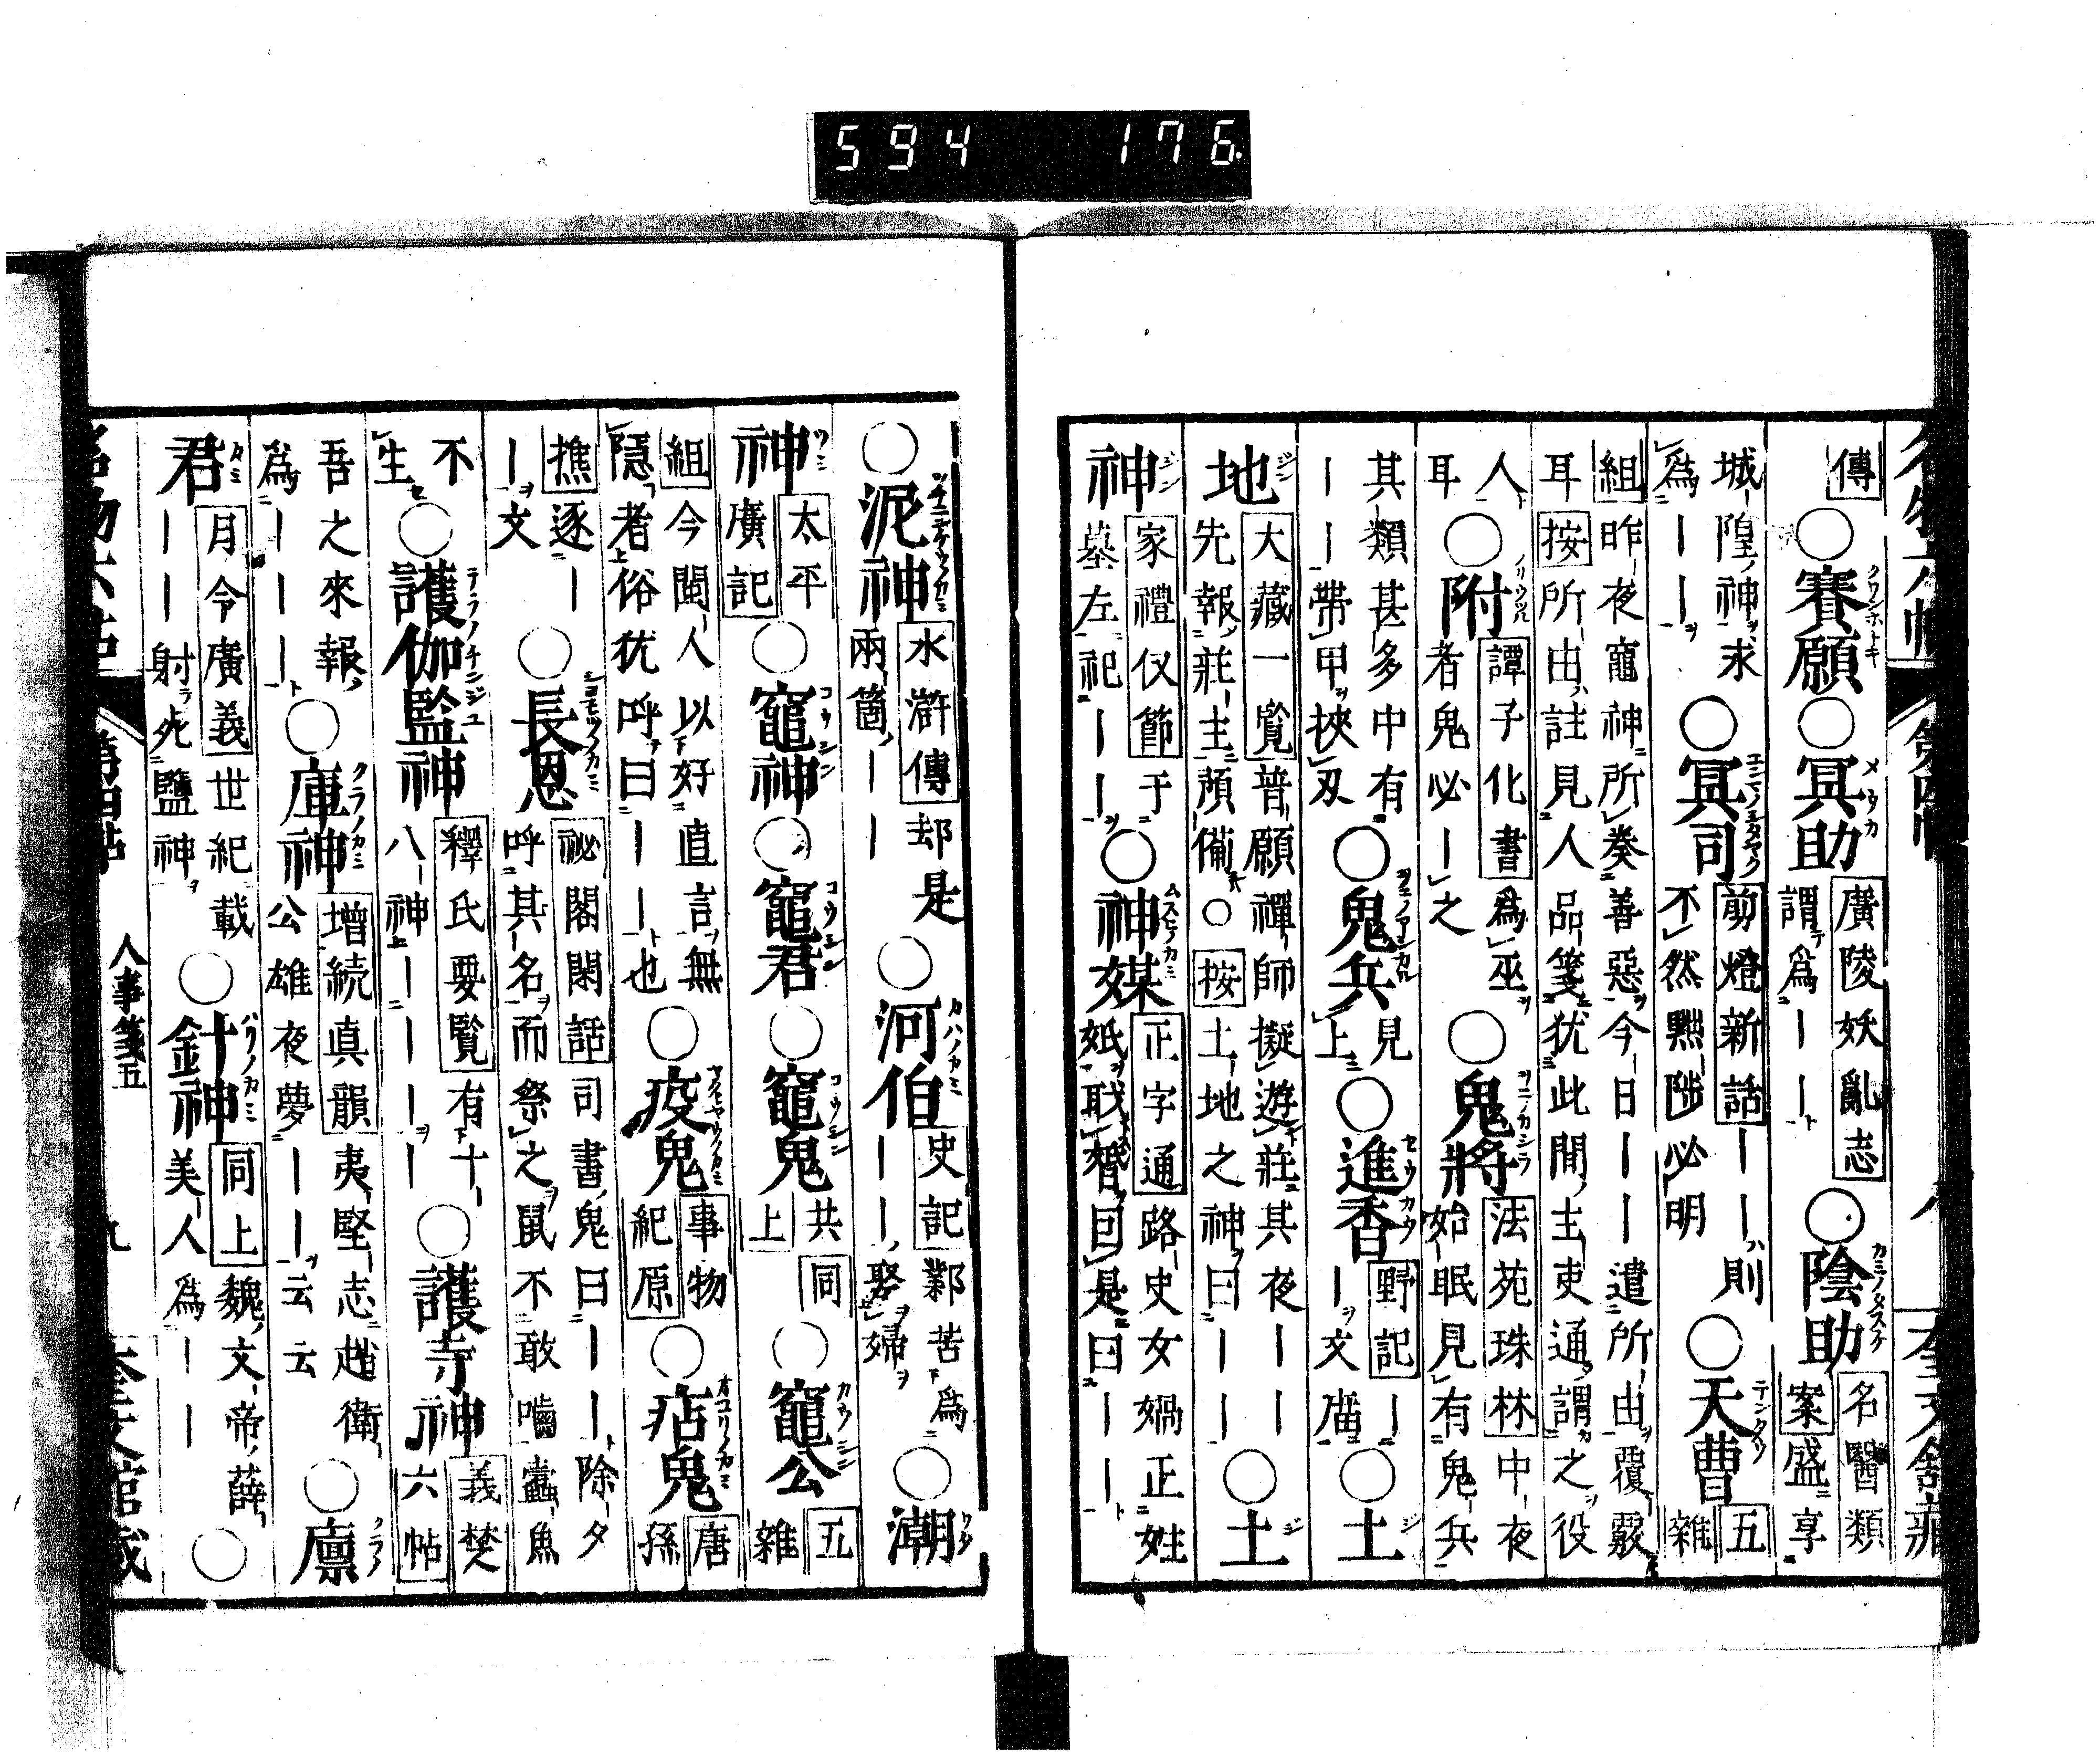 594 176
傳○賽願○冥助廣陵妖亂志謂為｜｜○陰助名醫類案盛享
城隍神求為｜｜○冥司剪燈新話｜｜則不然黜陟必明○天曹五雜
組昨夜竈神所奏善惡今日｜｜遣所由覆覈耳按所由註見人品箋犹此間主吏通謂之役
人耳○附譚子化書為巫者鬼必｜之○鬼將法苑珠林中夜始眠見有鬼兵
其類甚多中有｜｜帶甲挾刃○鬼兵見上○進香野記｜｜文廣○土
地大藏一覧普願禪師擬遊莊其夜｜｜先報莊主預備○按土地之神曰｜｜○土
神家禮仪節于墓左祀｜｜○神媒正字通路史女媧正姓
名物六帖 第四帖 人事箋五 九 奎文館藏
○泥神水滸傳却是兩箇｜｜○河伯史記鄴苦為｜｜娶婦○潮
神太平廣記○竈神○竈君○竈鬼共上同○竈公五雜
組今閩人以好直言無隱者俗犹呼曰｜｜也○疫鬼事物紀原○痁鬼唐孫
樵逐｜｜文○長恩祕閣閑話司書鬼曰｜｜除夕呼其名而祭之鼠不敢嚙蠹魚
不生○護伽監神釋氏要覧有十八神｜｜｜｜○護寺神義楚六帖
吾之來報為｜｜｜○庫神增続真韻夷堅志趙衛公雄夜夢｜｜云云○廩
君月令廣義世紀載｜｜｜射死鹽神○針神同上魏文帝薛美人為｜｜○